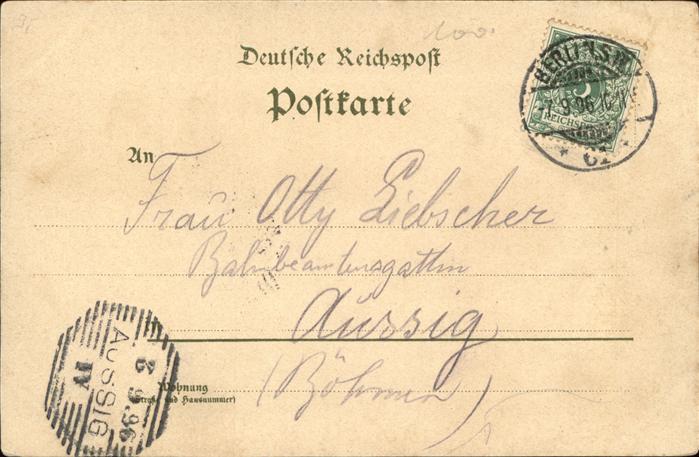 100.
Deutsche Reichspost
Postkarte
BERLIN S.W.
5
1.9.96
REICHSPOST
* 61 *
An
Frau Otty Liebscher
Bahnbeamtensgattin
Aussig
(Böhmen)
Wohnung
(Straße und Hausnummer)
AUSSIG
2 9.96
IV